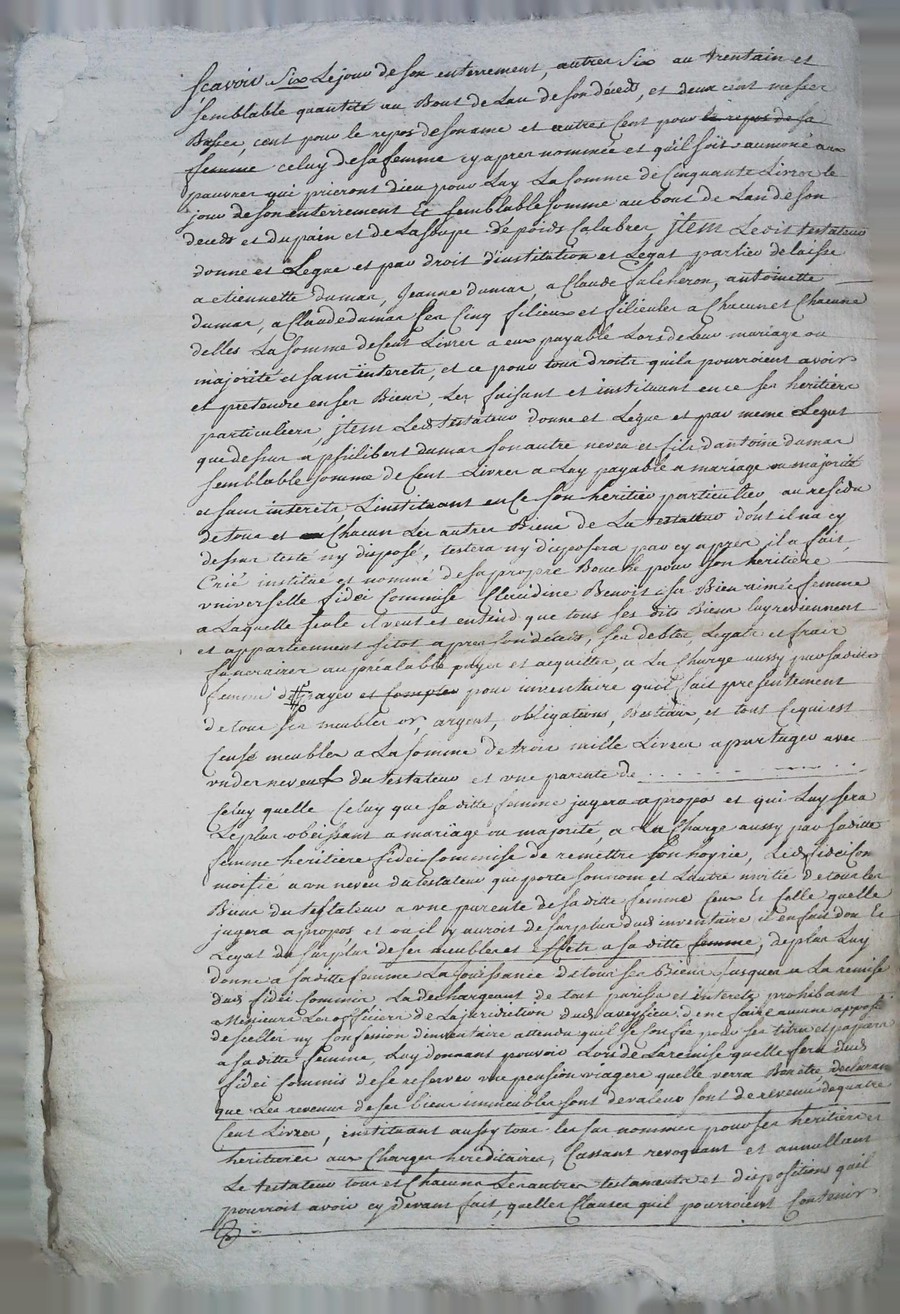 Scavoir Six Le jour de son enterrement, autres Six au trentain et
semblable quantité au Bout de Lan de son déceds, et deux cent messes
Basses, cent pour le repos de son ame et autres Cent pour le repos de sa
femme celuy de sa femme cy apres nommée et quil soit aumoné aux
pauvres qui prieront dieu pour Luy La somme de Cinquante Livres le
jour de son enterrement Et semblable somme au bout de Lan de son
deceds et du pain et de La soupe jtem Ledit testateur
donne et Legue et par droit d'institution et Legat partieu delaisse
a etiennette dumas, Jeanne dumas, a Claude falcheron, antoinette
dumas, a Claude dumas ses Cinq filieux et filieules a Chacun et Chacune
delles La somme de Cent Livres a eux payable Lors de Leur mariage ou
majorité et sans interets, et ce pour tous droits quils pourroient avoir
et pretendre en ses Biens, Les faisant et instituant en ce ses heritiers
particuliers, jtem Ledt testateur donne et Legue et par meme Legat
que dessus a philibert dumas son autre neveu et fils d'antoine dumas
semblable somme de Cent Livres a Luy payable a mariage ou majorité
et sans interets, L'instituant en Ce son heritier particulier, au residu
de tous et Chacun Les autres Biens de La testateur dont il na cy
dessus testé ny disposé, testera ny disposera par cy apres, il a fait,
Crié institué et nommé de sa propre Bouche pour son heritière
vniverselle fidei Commise Claudine Benoit sa Bien aimée femme
a Laquelle seule il veut et entend que tous ses dits Biens luy reviennent
et appartiennent sitot apres son décéds, ses debtes, Legats et frais
funeraires au préalable payés et acquittés, a La Charge aussy par sa ditte
femme de payer et Compter pour inventaire quil fait presentement
de tous ses meubles or, argent, obligations, Bestiaux, et tous Ce qui est
Censé meubles a La somme de trois mille Livres a partager avec
vn des neveux du testateur et vne parente de . . . . . . . . . .
Celuy quelle Celuy que sa ditte femme jugera apropos et qui Luy sera
Le plus obeissant a mariage ou majorité, a La Charge aussy par sa ditte
femme heritiere fidei Commise de remettre son hoyrie, Led. fidei Com
moitié a vn neveu du testateur qui porte son nom et Lautre moitié de tous les
Biens du testateur a vne parente de sa ditte femme Ceux Et Celle quelle
jugera apropos et ou il y auroit de surplus dud inventaire il en fait don Et
Legat du surplus de ses meubles et Effets a sa ditte femme, de plus Luy
donne a sa ditte femme La jouissance de tous ses Biens jusqua a La remise
dud fidei Commis La dechargeant de tout et interets prohibant
a Messieurs Les officiers de La jurediction dud aveysieu d'en faire aucune apposé
de sceller ny Confession d'inventaire attendu quil se Confée pour ses titres et papiers
a sa ditte femme, Luy donnant pouvoir Lors de La remise quelle fera dud
fidei Commis de se reserver vne pension viagere quelle verra Bon être declarant
que Les revenus de ses biens immeubles sont de valeur sont de revenu de quatre
Cent Livres, instituant aussy tous les sus nommés pour ses heritiers et
heritieres aux Charges hereditaires, Cassant revoquant et annullant
Le testateur tous et Chacuns Les autres testaments et dispositions quil
pourroit avoir cy devant fait, quelles Clauses quil pourroient Contenir